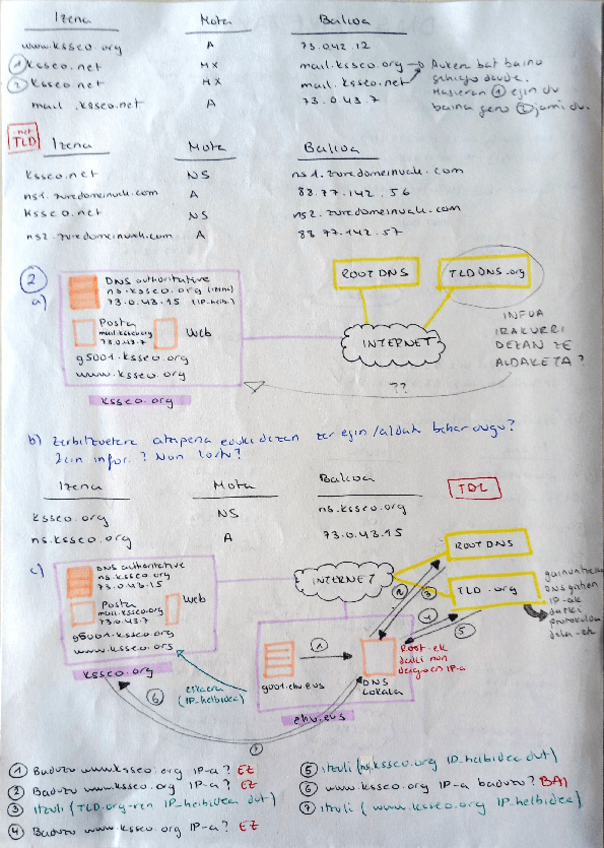 Izena Mota Balioa
www.ksseo.org A 73.042.12
① ksseo.net MX mail.ksseo.org → Auken bat baino
② ksseo.net MX mail.ksseo.net gehiago daude.
mail.ksseo.net A 73.0.43.7 Hasieran ① egin du
baina gero ② jarri du.
.net
TLD
Izena Mota Balioa
ksseo.net NS ns1.zuredomeinuak.com
ns1.zuredomeinuak.com A 88.77.142.56
ksseo.net NS ns2.zuredomeinuak.com
ns2.zuredomeinuak.com A 88 77.142.57
②
a)
DNS authoritative
ns.ksseo.org (izena)
73.0.43.15 (IP-helb.)
Posta
mail.ksseo.org
73.0.43.7
Web
g5001.ksseo.org
www.ksseo.org
ksseo.org
ROOT DNS
TLD DNS .org
INTERNET
INFUA
IRAKURRI
DEZAN ZE
ALDAKETA?
??
b) Zerbitzuetara atzipena eduki dezan zer egin/aldatu behar dugu?
Zein infor.? Non lortu?
Izena Mota Balioa
TDL
ksseo.org NS ns.ksseo.org
ns.ksseo.org A 73.0.43.15
c)
DNS authoritative
ns.ksseo.org
73.0.43.15
Posta
mail.ksseo.org
73.0.43.7
Web
g5001.ksseo.org
www.ksseo.org
ksseo.org
INTERNET
ROOT DNS
TLD .org
DNS
IP-ak
daki
protokoloa
dela-eta
② ③
④
⑤
①
g001.ehu.eus
DNS
Lokala
Root-ek
daki non
dagoen IP-a
ehu.eus
eskaera
(IP_helbidea)
⑥
⑦
① Baduzu www.ksseo.org IP-a? EZ
② Baduzu www.ksseo.org IP-a? EZ
③ itzuli (TLD.org-ren IP_helbidea dut)
④ Baduzu www.ksseo.org IP-a? EZ
⑤ itzuli (ns.ksseo.org IP_helbidea dut)
⑥ www.ksseo.org IP-a baduzu? BAI
⑦ itzuli (www.ksseo.org IP_helbidea)